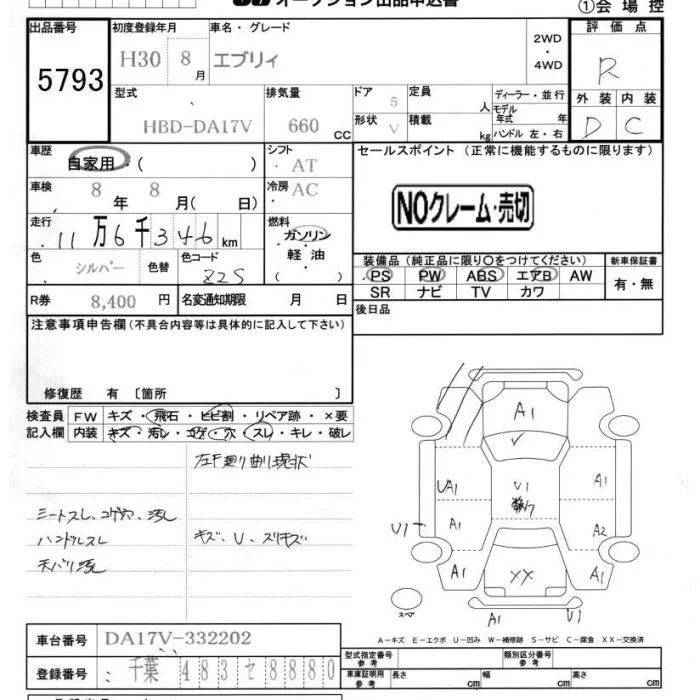 オークション出品申込書
①会場控
出品番号 初度登録年月 車名・グレード 評価点
5793 H30 8月 エブリィ 2WD・4WD R
型式 排気量 ドア 定員 ディーラー・並行 外装 内装
HBD-DA17V 660 CC 5 人 モデル年式 年 D C
形状 V 積載 kg ハンドル 左・右
車歴 自家用・( ) シフト AT セールスポイント (正常に機能するものに限ります)
車検 8年 8月( 日) 冷房 AC
NOクレーム・売切
走行 11万6千346km 燃料 ガソリン・軽油 ( )
色 シルバー 色替 色コード Z2S
装備品 (純正品に限り〇をつけてください) 新車保証書
PS PW ABS エアB AW 有・無
SR ナビ TV カワ
R券 8,400円 名変通知期限 月 日
後日品
注意事項申告欄 (不具合内容等は具体的に記入して下さい)
修復歴 有 〔箇所 〕
検査員 FW キズ・飛石・ヒビ割・リペア跡・×要
記入欄 内装 キズ・汚レ・コゲ・穴・スレ・キレ・破レ
シートスレ、コゲ穴、汚レ
ハンドルスレ
天バリ汚レ
キズ、U、スリキズ
A1
U1
UA1 A1
U1 A1 A2
A1 XX A1
スペア
A1 U1
A-キズ E-エクボ U-凹み W-補修跡 S-サビ C-腐食 XX-交換済
車台番号 DA17V-332202
登録番号 千葉 483 セ 8880
型式指定番号 参考 類別区分番号 参考
車庫証明 参考 長さ cm 幅 cm 高さ cm